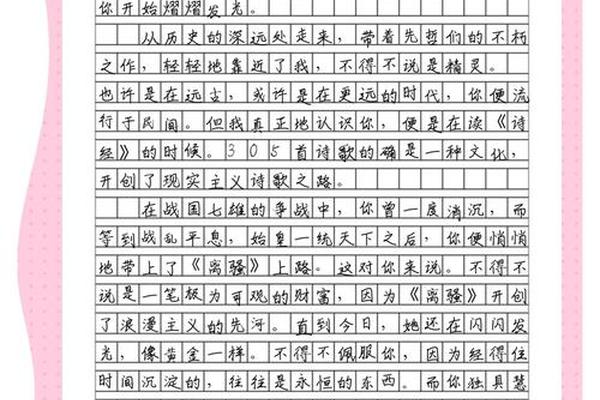 你开始熠熠发光。
从历史的深远处走来，带着先哲们的不朽
之作，轻轻地靠近了我，不得不说是精灵。
也许是在远古，或许是在更远的时代，你便流
行于民间。但我真正地认识你，便是在读《诗
经》的时候。305首诗歌的确是一种文化，
开创了现实主义诗歌之路。
在战国七雄的争战中，你曾一度消沉，而
等到战乱平息，始皇一统天下之后，你便悄悄
地带上了《离骚》上路。这对你来说。不得不
说是一笔极为可观的财富，因为《离骚》开创
了浪漫主义的先河。直到今日，她还在闪闪发
光，像黄金一样。不得不佩服你，因为经得住
时间沉淀的，往往是永恒的东西。而你独具慧